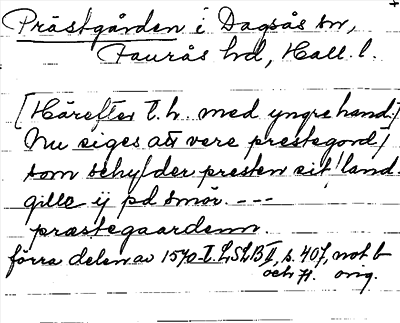 Prästgården i Dagsås sn,
Faurås hd, Hall. l.
[Härefter t. h. med yngre hand:]
Nu siges att vere prestegord/
som schylder presten sit land-
gille ij pd smör. ---
præstegaardenn.
förra delen av 1570-t. LSLB II, s. 407, not b
och H. orig.